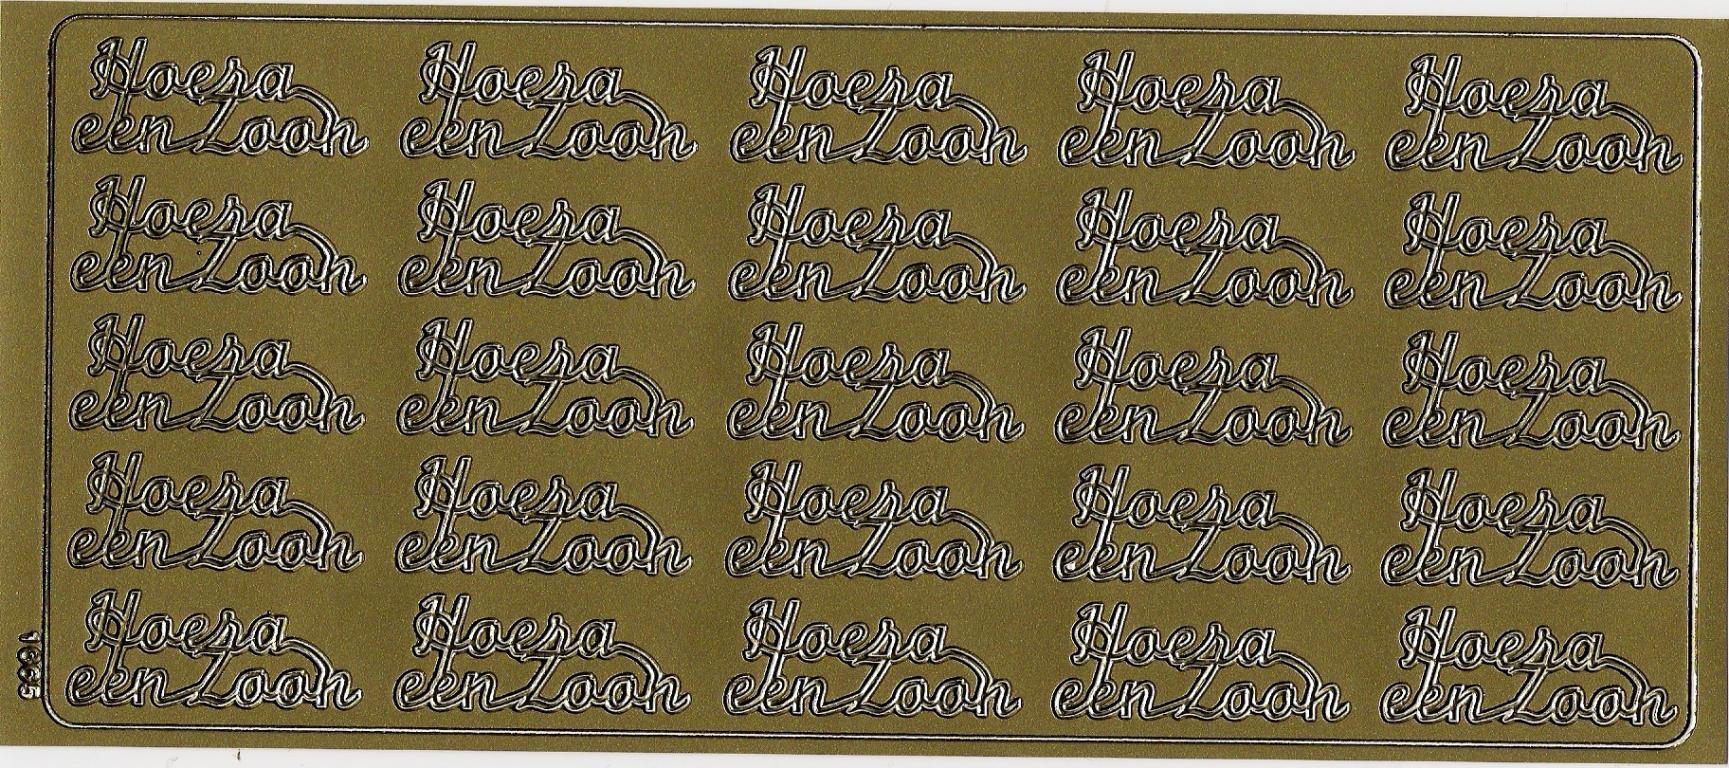 Hoera Hoera Hoera Hoera Hoera
een Zoon een Zoon een Zoon een Zoon een Zoon
Hoera Hoera Hoera Hoera Hoera
een Zoon een Zoon een Zoon een Zoon een Zoon
Hoera Hoera Hoera Hoera Hoera
een Zoon een Zoon een Zoon een Zoon een Zoon
Hoera Hoera Hoera Hoera Hoera
een Zoon een Zoon een Zoon een Zoon een Zoon
Hoera Hoera Hoera Hoera Hoera
een Zoon een Zoon een Zoon een Zoon een Zoon